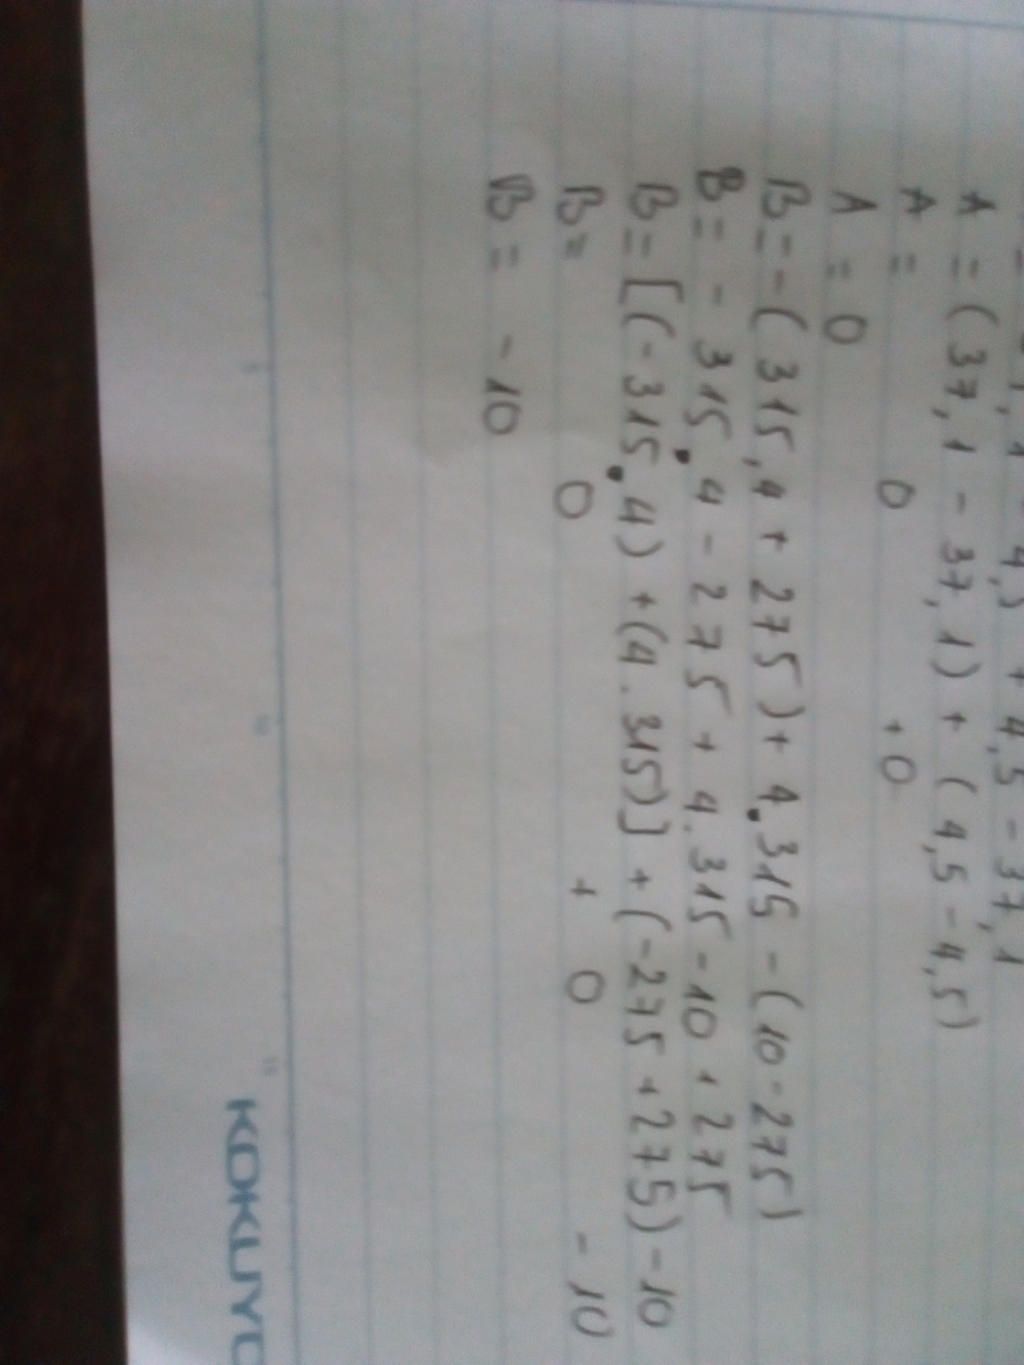 4,5 + 4,5 - 37,1
A = (37,1 - 37,1) + (4,5 - 4,5)
A = 0 + 0
A = 0
B = - (315,4 + 275) + 4.315 - (10 - 275)
B = - 315.4 - 275 + 4.315 - 10 + 275
B = [(-315.4) + (4.315)] + (-275 + 275) - 10
B = 0 + 0 - 10
B = - 10
5
10
15
KOKUYO